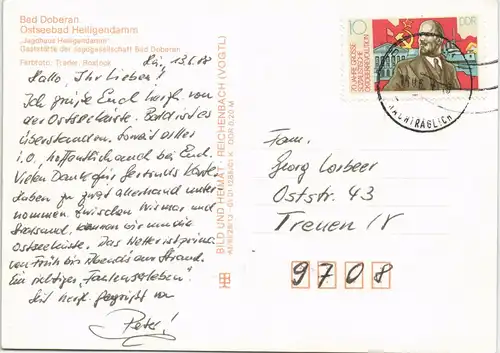 Bad Doberan
Ostseebad Heiligendamm
„Jagdhaus Heiligendamm"
Gaststätte der Jagdgesellschaft Bad Doberan
Farbfoto: Rostock
13.6.88
Hallo, Ihr Lieben!
Ich grüße Euch herzl. von
der Ostseeküste. Bald ist es
überstanden. Sonst alles
i.O., hoffentlich auch bei Euch.
Vielen Dank für Karte.
Haben zu zweit allerhand unter
nommen. Zwischen Wismar und
Stralsund, kennen wir nun die
Ostseeküste. Das Wetter ist prima.
Von Früh bis Abends am Strand.
Ein richtiges
Seid herzl. gegrüßt von
Peter!
BILD UND HEIMAT · REICHENBACH (VOGTL)
DDR 0,20 M
10
DDR
70 JAHRE GROSSE
SOZIALISTISCHE
OKTOBERREVOLUTION
NACHTRÄGLICH
Fam.
Georg Lorbeer
Oststr. 43
Treuen IV
9708